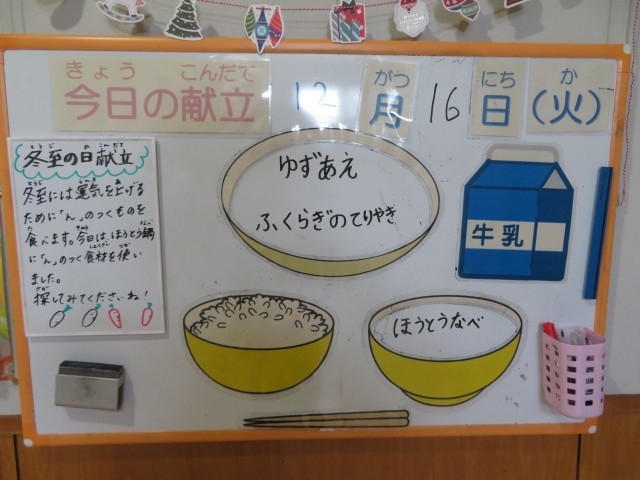 きょう こんだて
今日の献立
12
がつ
月
16
にち
日
か
(火)
とうじ ひ こんだて
冬至の日献立
冬至には運気を上げる
ために「ん」のつくものを
食べます。今日は、ほうとう鍋
に「ん」のつく食材を使い
ました。
探してみてくださいね!
ゆずあえ
ふくらぎのてりやき
牛乳
ほうとうなべ